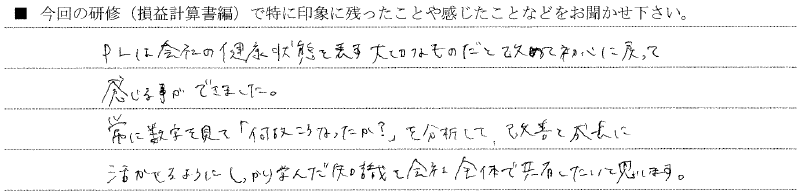 ■ 今回の研修（損益計算書編）で特に印象に残ったことや感じたことなどをお聞かせ下さい。
PLは会社の健康状態を表す大切なものだと改めて初心に戻って
感じる事ができました。
常に数字を見て「何故こうなったか？」を分析して、改善と成長に
活かせるようにしっかり学んだ知識を会社全体で共有したいと思います。